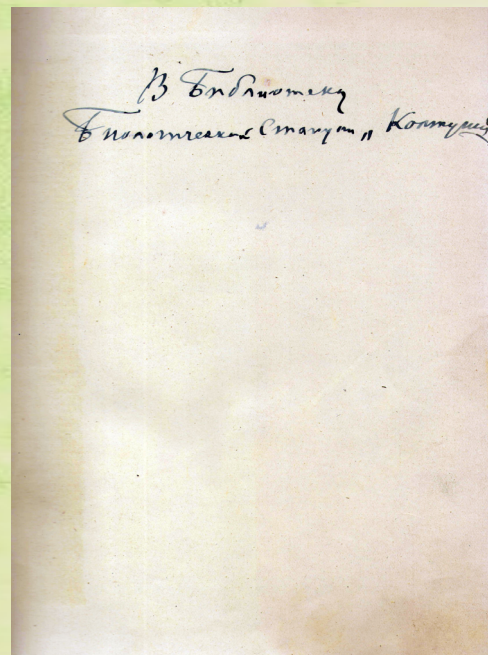 В Библиотеку
Биологической Станции „Колтуши